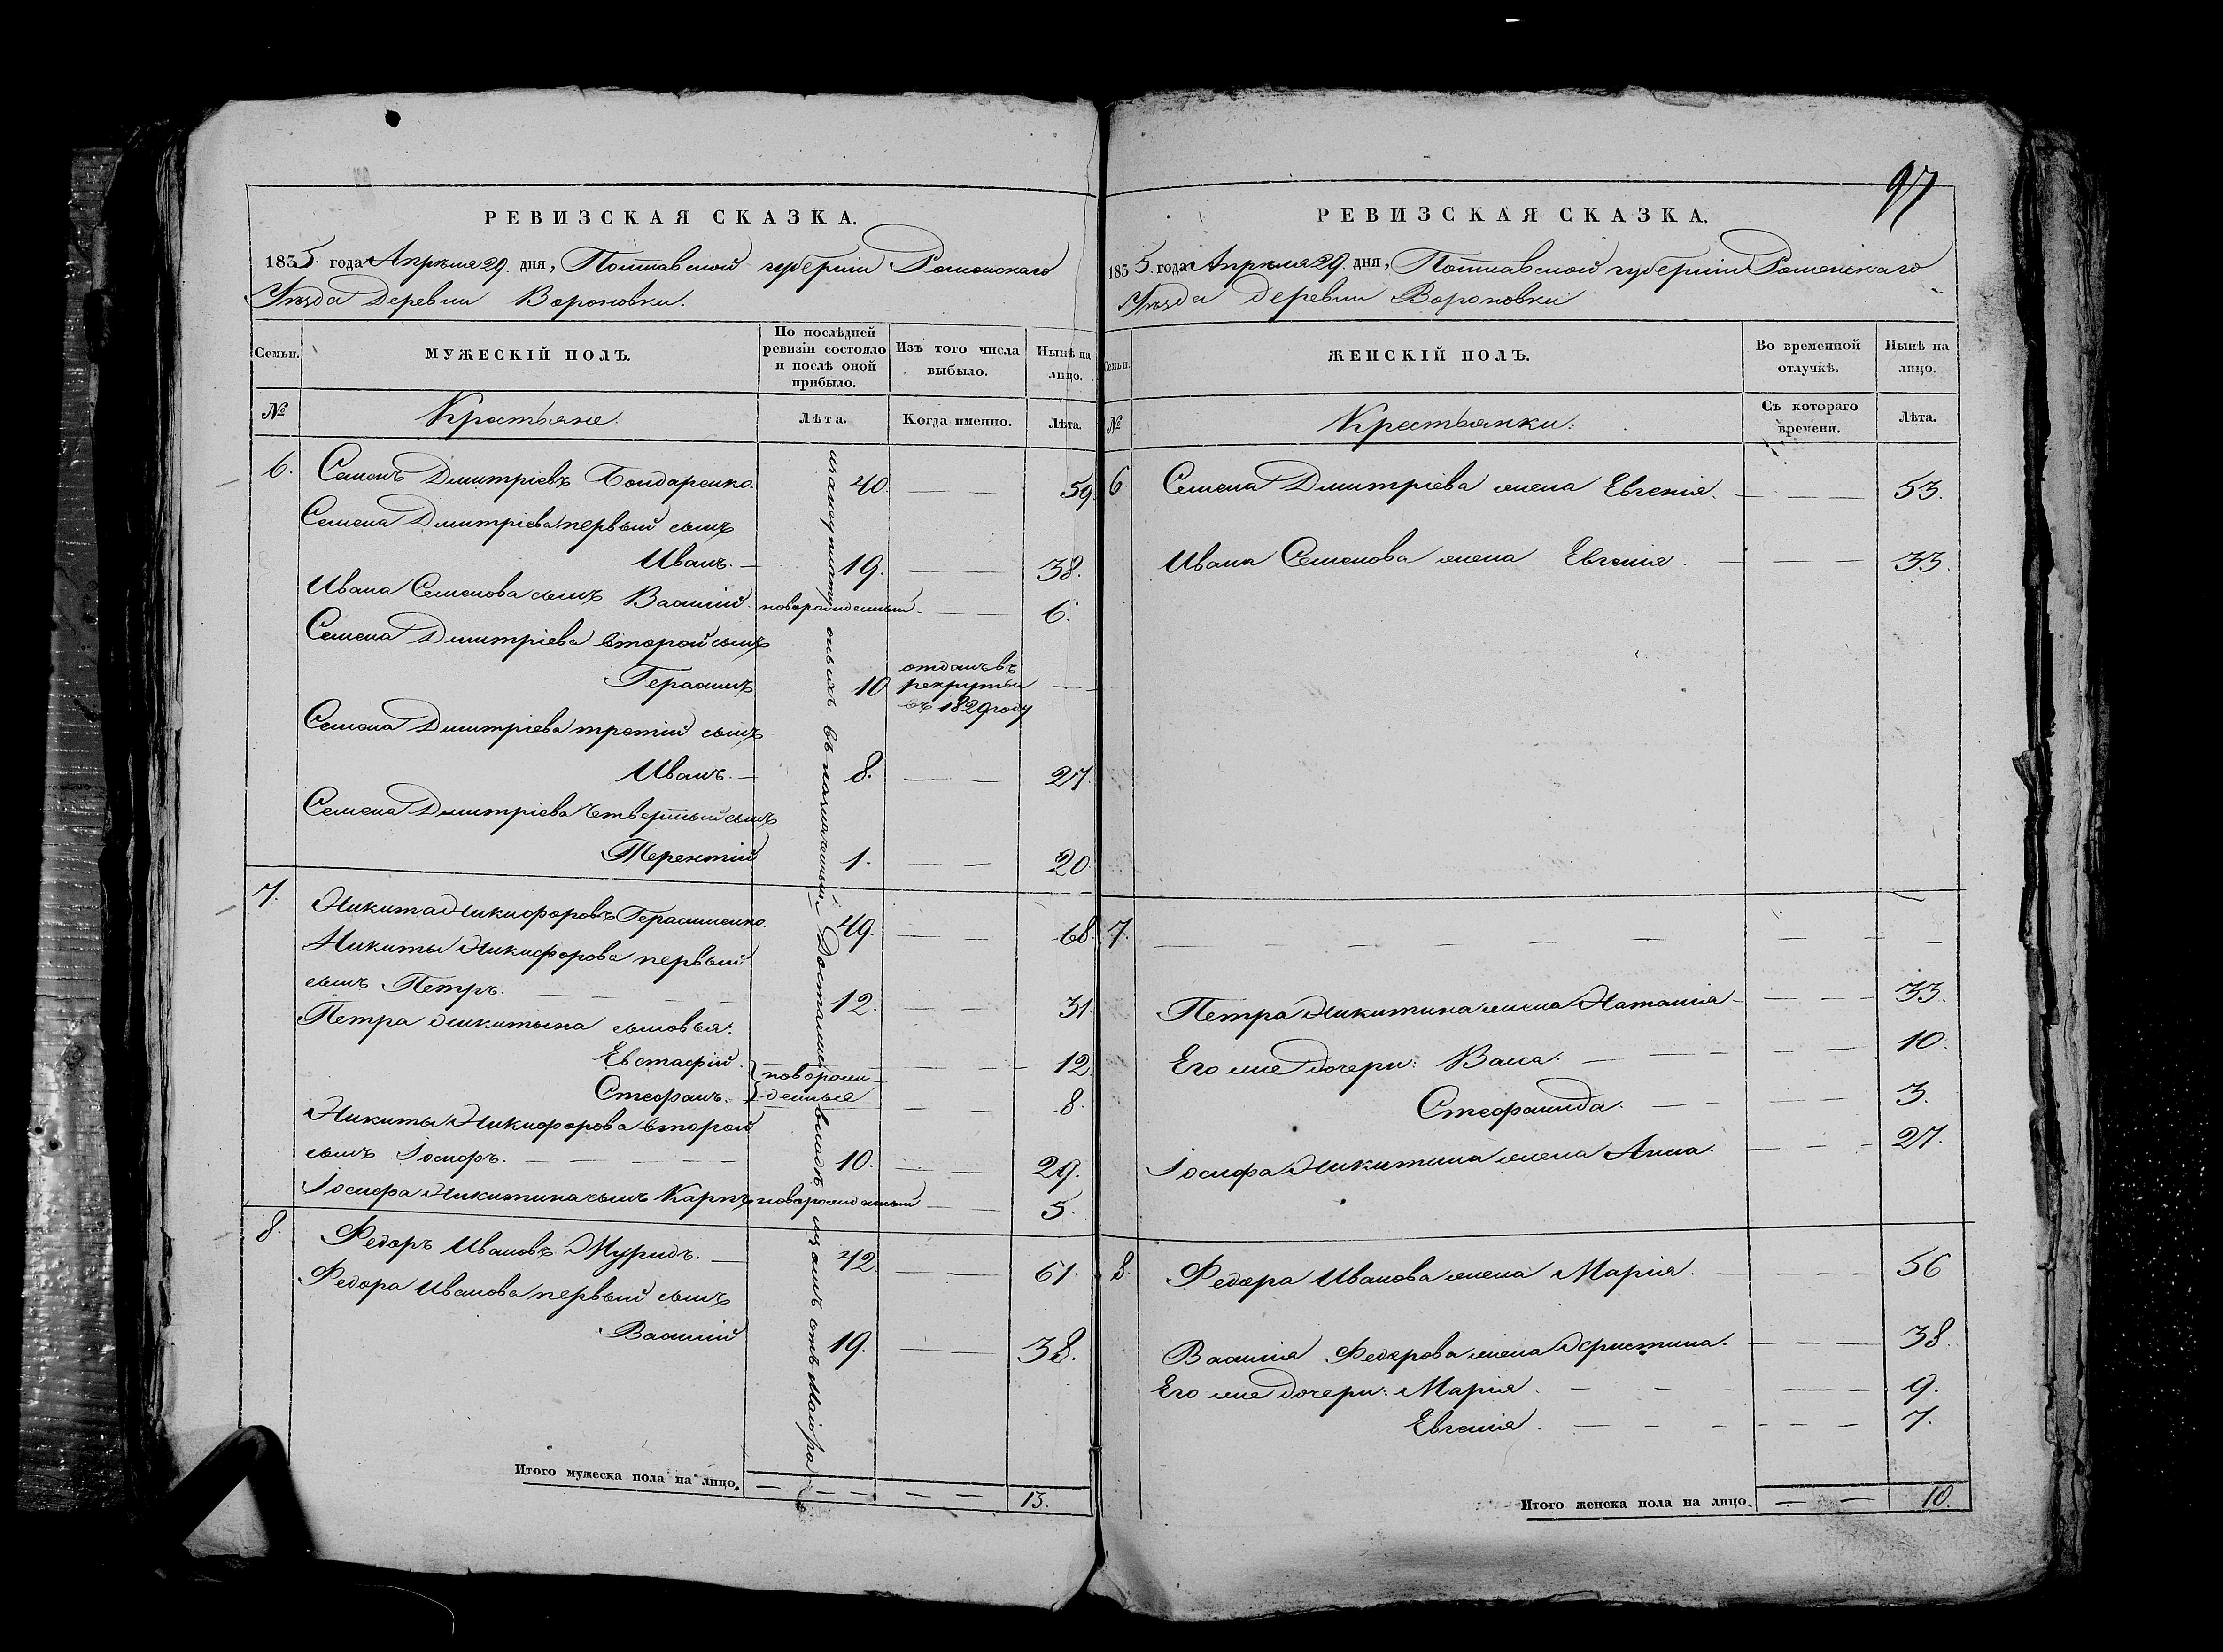 97
РЕВИЗСКАЯ СКАЗКА.
1835. года Апрѣля 29. дня, Полтавской губерніи Роменскаго
Уѣзда деревни Вороновки.
Семьи.
МУЖЕСКІЙ ПОЛЪ.
По послѣдней ревизіи состояло и послѣ оной прибыло.
Изъ того числа выбыло.
Нынѣ на лицо.
№
Крестьяне.
Лѣта.
Когда именно.
Лѣта.
6. Семенъ Дмитріевъ Бондаренко. 40. — — 59.
Семена Дмитріева первый сынъ
Иванъ. — 19. — — 38.
Ивана Семенова сынъ Василій. новорожденный — — 6.
Семена Дмитріева второй сынъ
Герасимъ 10 отданъ въ рекруты въ 1829 году — —
Семена Дмитріева третій сынъ
Иванъ. — 8. — — 27.
Семена Дмитріева четвертый сынъ
Терентій 1. — — 20.
7. Никита Никифоровъ Герасименко. 49. — — 68.
Никиты Никифорова первый
сынъ Петръ. — — — — 12. — — 31.
Петра Никитина сыновья:
Евстафій. новорож- — — — 12.
Стефанъ. денные — — 8.
Никиты Никифорова второй
сынъ Іосифъ. — — — — 10. — — 29.
Іосифа Никитина сынъ Карпъ новорожденный — — 5.
8. Федоръ Ивановъ Журидъ. — 42. — — 61.
Федора Иванова первый сынъ
Василій 19. — — 38.
въ Достались отъ Маіора
Итого мужеска пола на лицо. — — — — — 13.
РЕВИЗСКАЯ СКАЗКА.
1835. года Апрѣля 29. дня, Полтавской губерніи Роменскаго
Уѣзда деревни Вороновки
Семьи.
ЖЕНСКІЙ ПОЛЪ.
Во временной отлучкѣ.
Нынѣ на лицо.
№
Крестьянки:
Съ котораго времени.
Лѣта.
6. Семена Дмитріева жена Евгенія. — — — 53.
Ивана Семенова жена Евгенія. — — — — 33.
7. — — — — — — — — —
Петра Никитина жена Наталія — — — — 33.
Его же дочери: Васса. — — — — — 10.
Стефанида. — — — — — 3.
Іосифа Никитина жена Анна. — — — 27.
8. Федора Иванова жена Марія. — — — — 56
Василія Федорова жена Христина. — — — 38.
Его же дочери: Марія. — — — — — 9.
Евгенія. — — — — — — 7.
Итого женска пола на лицо. — — 10.